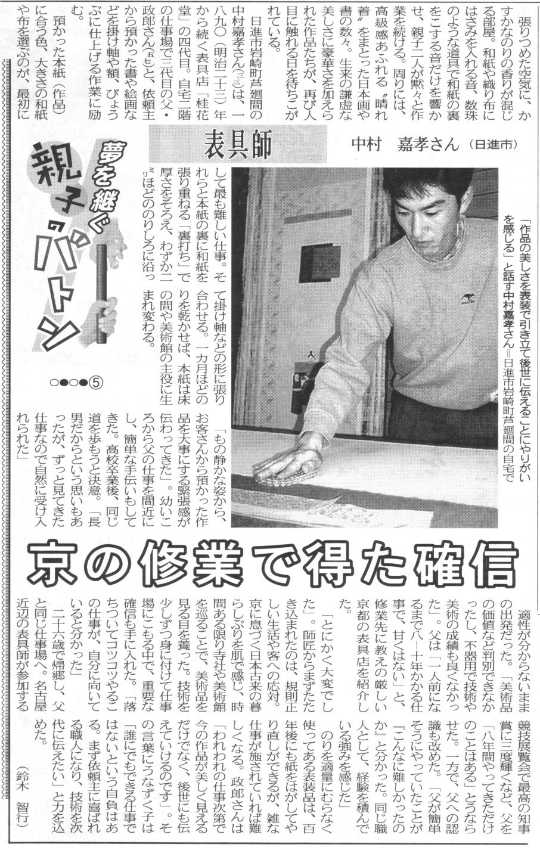 張りつめた空気に、か
すかなのりの香りが混じ
る部屋。和紙や織り布に
はさみを入れる音、数珠
のような道具で和紙の裏
をこする音だけを響か
せ、親子二人が黙々と作
業を続ける。周りには、
高級感あふれる〝晴れ
着〟をまとった日本画や
書の数々。生来の謙虚な
美しさに豪華さを加えら
れた作品たちが、再び人
目に触れる日を待ちこが
れている。
日進市岩崎町芦廻間の
中村嘉孝さん(三〇)は、一
八九〇(明治二十三)年
から続く表具店「桂花
堂」の四代目。自宅二階
の仕事場で三代目の父・
政郎さん(六一)と、依頼主
から預かった書や絵画な
どを掛け軸や額、びょう
ぶに仕上げる作業に励
む。
預かった本紙(作品)
に合う色、大きさの和紙
や布を選ぶのが、最初に
表具師
中村 嘉孝さん(日進市)
夢を継ぐ
親子のバトン
○●○●⑤
して最も難しい仕事。そ
れらと本紙の裏に和紙を
張り重ねる「裏打ち」で
厚さをそろえ、わずか二
㍉ほどののりしろに沿っ
て掛け軸などの形に張り
合わせる。一カ月ほどの
りを乾かせば、本紙は床
の間や美術館の主役に生
まれ変わる。
「作品の美しさを表装で引き立て後世に伝える」ことにやりがい
を感じる」と話す中村嘉孝さん=日進市岩崎町芦廻間の自宅で
「もの静かな姿から、
お客さんから預かった作
品を大事にする緊張感が
伝わってきた」。幼いこ
ろから父の仕事を間近に
し、簡単な手伝いもして
きた。高校卒業後、同じ
道を歩もうと決意。「長
男だからという思いもあ
ったが、ずっと見てきた
仕事なので自然に受け入
れられた」
京の修業で得た確信
適性が分からないまま
の出発だった。「美術品
の価値など判別できなか
ったし、不器用で技術や
美術の成績も良くなかっ
た」。父は「一人前にな
るまで八、十年かかる仕
事で、甘くはない」と、
修業先に教えの厳しい
京都の表具店を紹介し
た。
「とにかく大変でし
た」。師匠からまずたた
き込まれたのは、規則正
しい生活や客への応対。
京に息づく日本古来の暮
らしぶりを肌で感じ、時
間ある限り寺社や美術館
を巡ることで、美術品を
見る目を養った。技術を
少しずつ身に付けて仕事
場にこもる中で、重要な
確信も手に入れた。「落
ちついてコツコツやるこ
の仕事が、自分に向いて
いると分かった」
二十六歳で帰郷し、父
と同じ仕事場へ。名古屋
近辺の表具師が参加する
競技展覧会で最高の知事
賞に三度輝くなど、父を
「八年間やってきただけ
のことはある」とうなら
せた。一方で、父への認
識も改めた。「父が簡単
そうにやっていたことが
『こんなに難しかったの
か』と分かった。同じ職
人として、経験を積んで
いる強みを感じた」
のりを適量にむらなく
使ってある表装品は、百
年後にも紙をはがしてや
り直しができるが、雑な
仕事が施されていれば難
しくなる。政郎さんは
「われわれの仕事次第で
今の作品が美しく見える
だけでなく、後世にも伝
えていけるのです」。そ
の言葉にうなずく子は
「誰にでもできる仕事で
はないという自負はあ
る。まず依頼主に喜ばれ
る職人になり、技術を次
代に伝えたい」と力を込
めた。
(鈴木 智行)